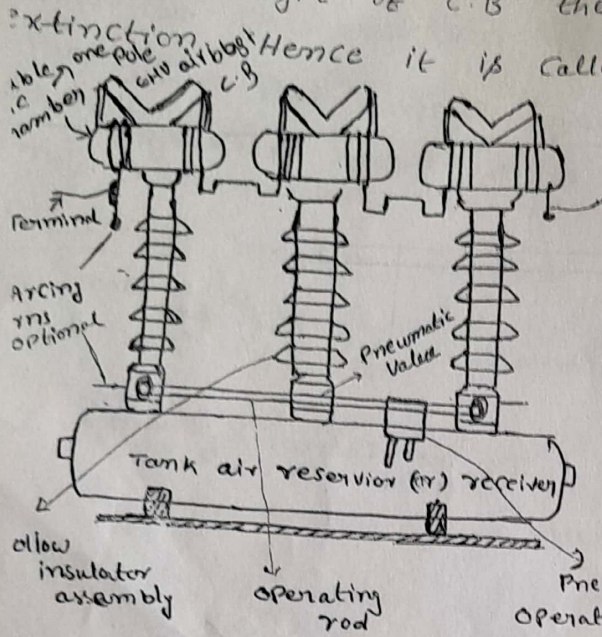 of C.B the
xtinction Hence it is call
one pole EHV air blast
C.B
Terminal
Arcing
rns
optional
Pneumatic
Valve
Tank air reservior (or) receiver
ollow
insulator
assembly
operating
rod
Pne
operat